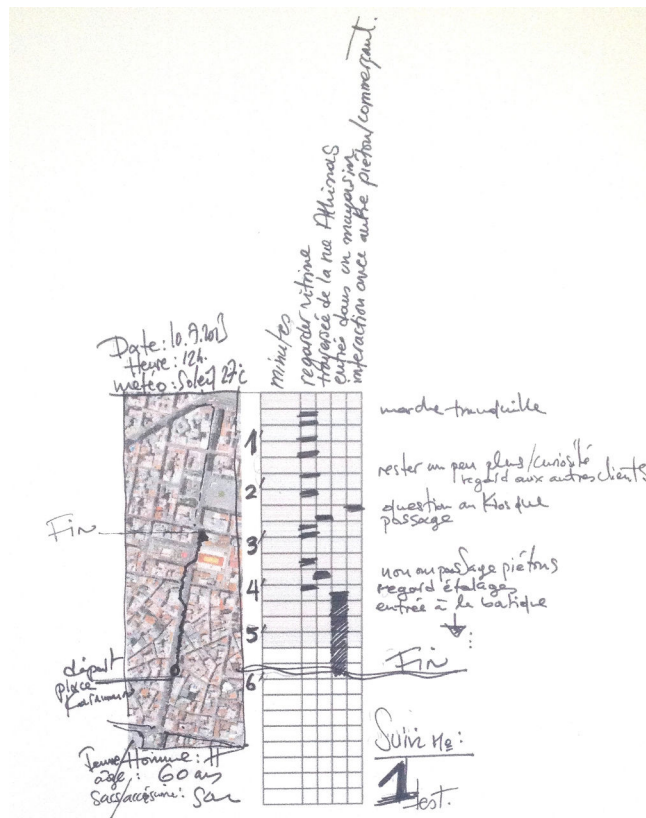 Date: 10.9.2013
Heure: 12h.
météo: Soleil 27°C
minutes
regarder vitrine
traversée de la rue Athinas
entrée dans un magasin
interaction avec autre piéton/commerçant.
1'
2'
3'
4'
5'
6'
marche tranquille
rester un peu plus/curiosité
regard aux autres clients
question au Kiosque
passage
non au passage piétons
regard étalages
entrée à la boutique
Fin
Fin
départ
place
Femme/Homme: H
age: 60 ans
Sacs/accessoire: Sac
Suivi No:
1
test.